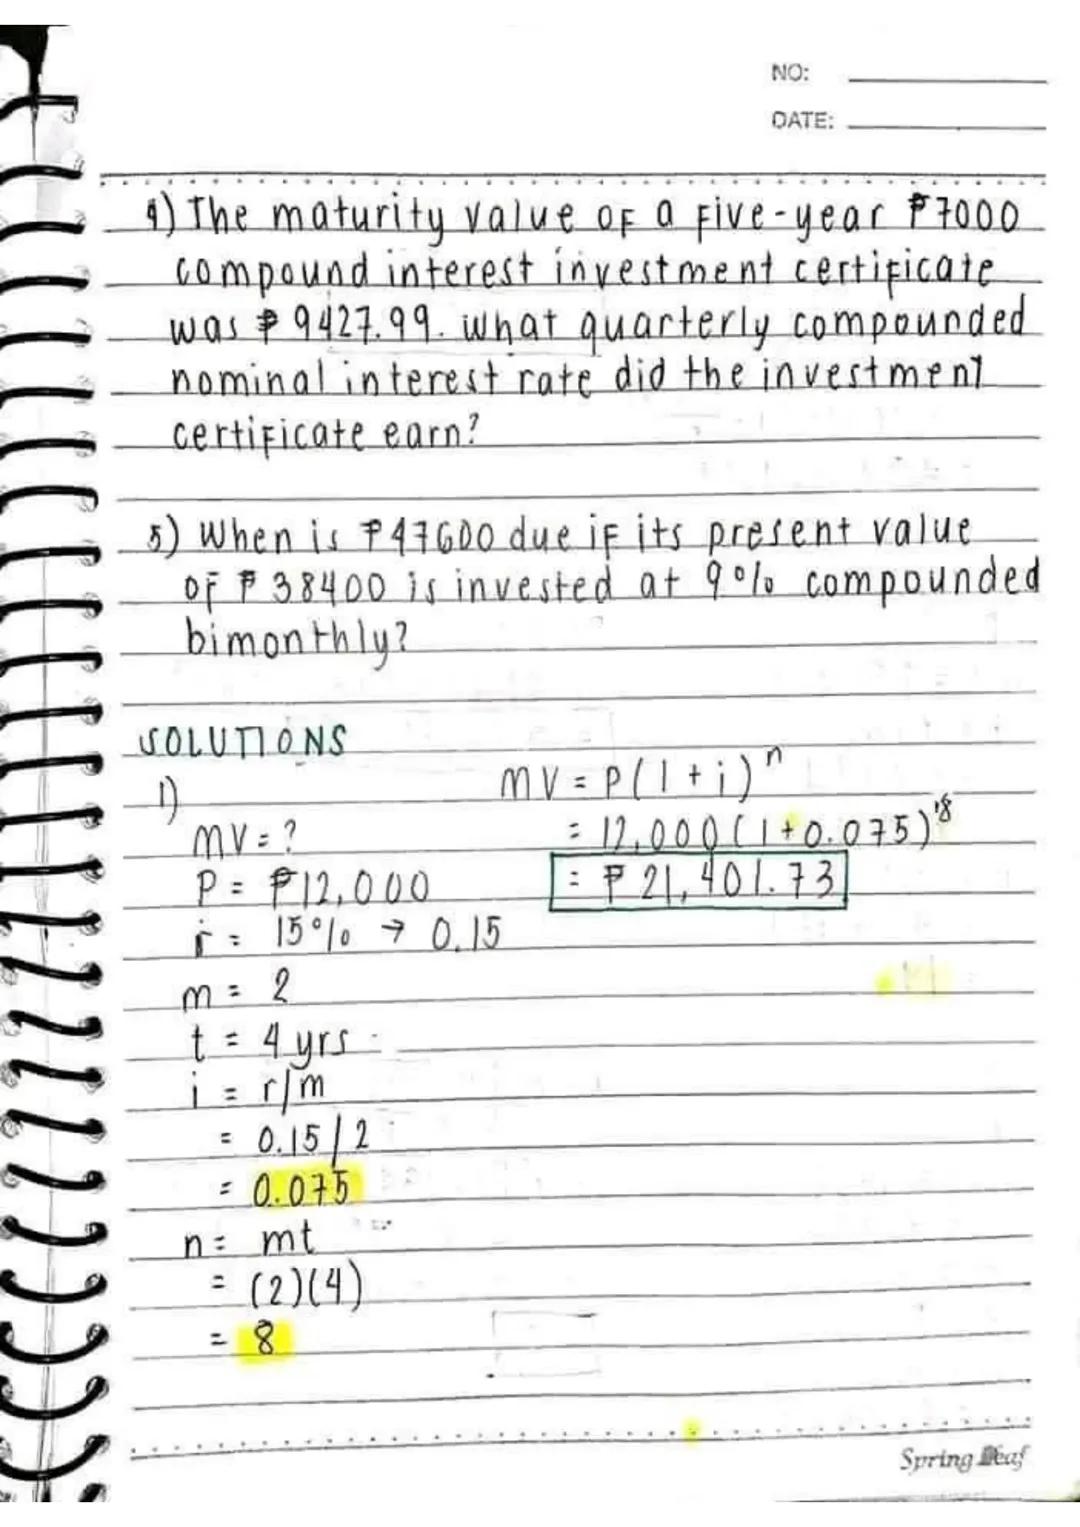 NO:
DATE:
4) The maturity value of a five-year ₱7000
compound interest investment certificate
was ₱9427.99. What quarterly compounded
nominal interest rate did the investment
certificate earn?
5) When is ₱47600 due if its present value
of ₱38400 is invested at 9% compounded
bimonthly?
SOLUTIONS
1)
MV = ?
P = ₱12,000
r = 15% → 0.15
m = 2
t = 4 yrs
i = r/m
= 0.15/2
= 0.075
n = mt
= (2)(4)
= 8
MV = P(1+i)ⁿ
= 12,000(1+0.075)⁸
= ₱21,401.73
Spring Leaf